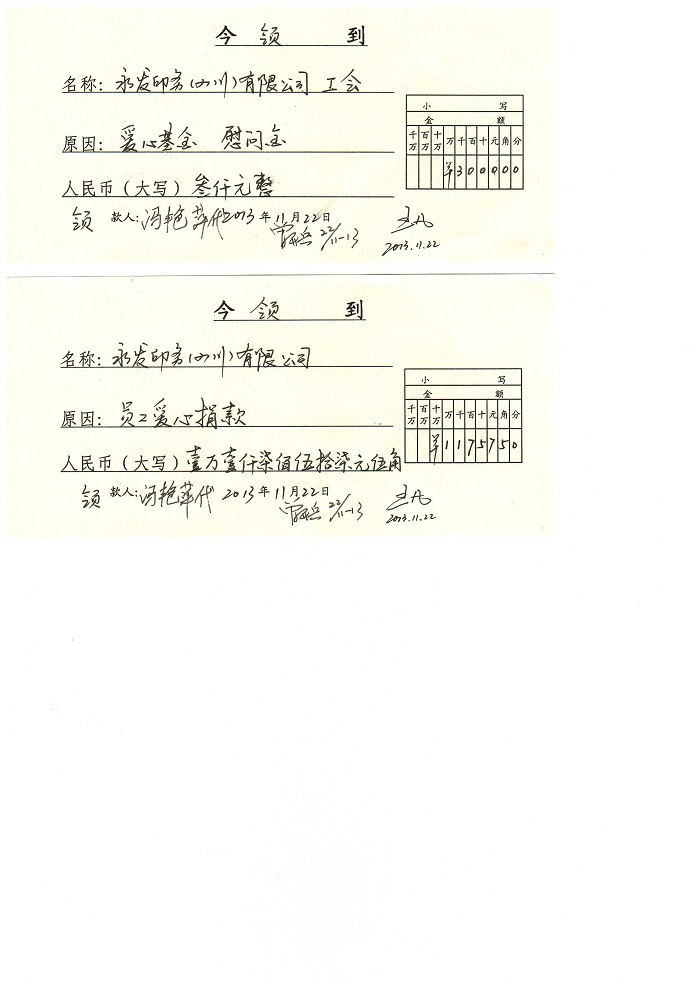 今 领 到
名称：永发印务(四川)有限公司 工会
小 写
金 额
千万 百万 十万 万 千 百 十 元 角 分
¥300000
原因：爱心基金 慰问金
人民币（大写）叁仟元整
领 款人：冯艳萍代 2013年11月22日
22/11-13
2013.11.22
今 领 到
名称：永发印务(四川)有限公司
小 写
金 额
千万 百万 十万 万 千 百 十 元 角 分
¥1175750
原因：员工爱心捐款
人民币（大写）壹万壹仟柒佰伍拾柒元伍角
领 款人：冯艳萍代 2013年11月22日
22/11-13
2013.11.22